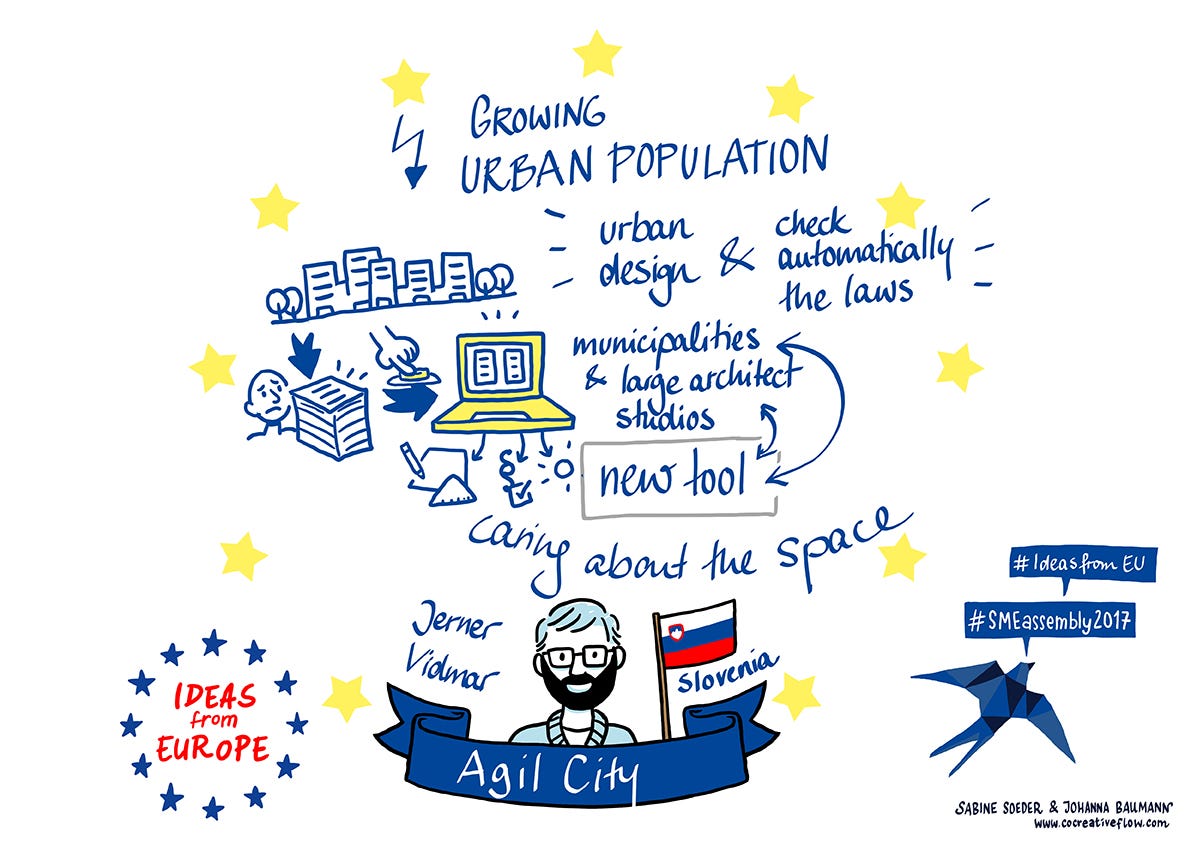 GROWING
URBAN POPULATION
urban
design
&
check
automatically
the laws
municipalities
& large architect
studios
new tool
caring about the space
Jerner
Vidmar
Slovenia
Agil City
IDEAS
from
EUROPE
#Ideasfrom EU
#SMEassembly2017
SABINE SOEDER & JOHANNA BAUMANN
www.cocreativeflow.com